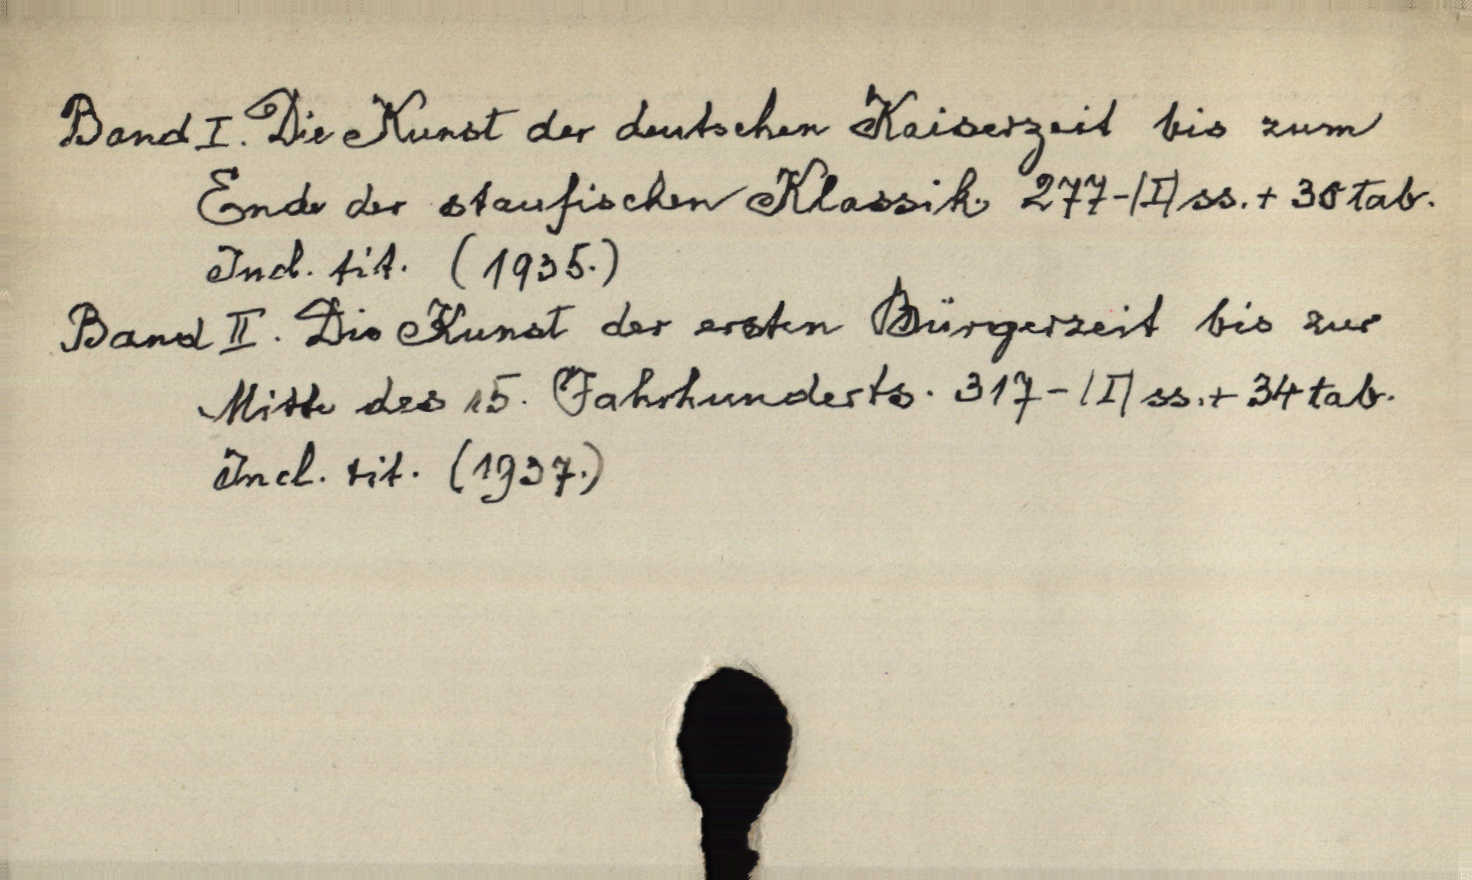 Band I. Die Kunst der deutschen Kaiserzeit bis zum
Ende der staufischen Klassik. 277-|I| ss. + 36 tab.
Incl. tit. (1935.)
Band II. Die Kunst der ersten Bürgerzeit bis zur
Mitte des 15. Jahrhunderts. 317-|I| ss. + 34 tab.
Incl. tit. (1937.)